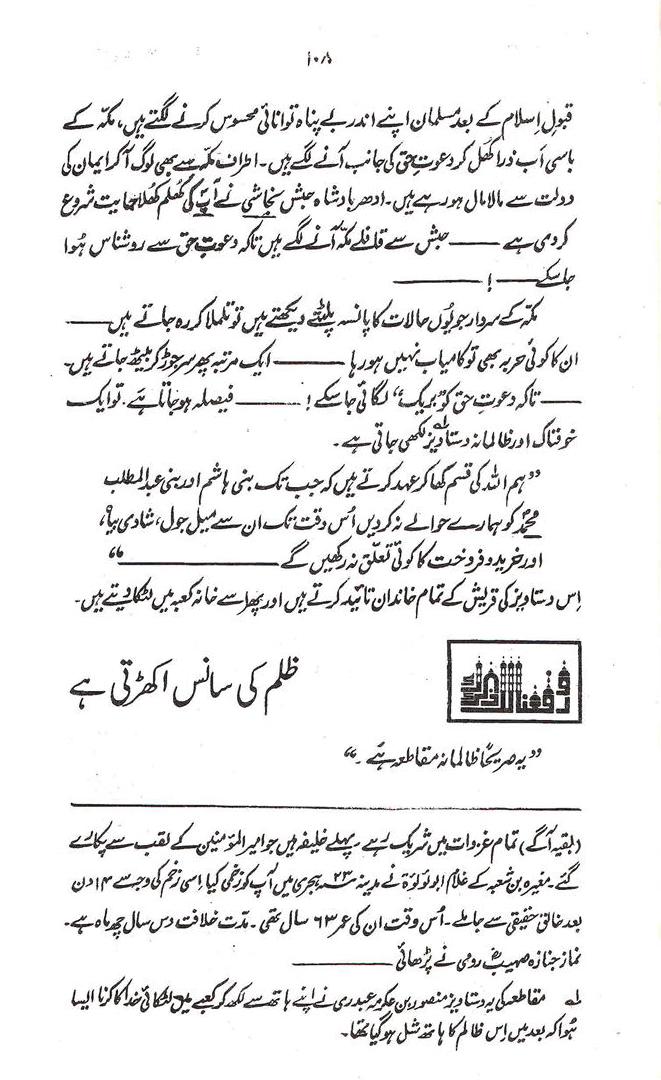 ۱۰۸
قبولِ اسلام کے بعد مسلمان اپنے اندر بے پناہ توانائی محسوس کرنے لگتے ہیں، مکہ کے
باسی اَب ذرا کھل کر دعوتِ حق کی جانب آنے لگے ہیں۔ اطراف مکہ سے بھی لوگ آ کر ایمان کی
دولت سے مالا مال ہو رہے ہیں۔ ادھر بادشاہ حبش نجاشی نے آپؐ کی کھلم کھلا حمایت شروع
کر دی ہے ــــــ حبش سے قافلے مکہ آنے لگے ہیں تاکہ دعوتِ حق سے روشناس ہُوا
جا سکے ــــــ ! ــــــ
مکہ کے سردار جو یُوں حالات کا پانسہ پلٹتے دیکھتے ہیں تو تلملا کر رہ جاتے ہیں ــــــ
ان کا کوئی حربہ بھی تو کامیاب نہیں ہو رہا ــــــ ایک مرتبہ پھر سر جوڑ کر بیٹھ جاتے ہیں۔
ــــــ تاکہ دعوتِ حق کو "بریک" لگائی جا سکے ! ــــــ فیصلہ ہو جاتا ہے۔ تو ایک
خوفناک اور ظالمانہ دستاویز لکھی جاتی ہے۔
"ہم اللہ کی قسم کھا کر عہد کرتے ہیں کہ جب تک بنی ہاشم اور بنی عبدالمطلب
محمدؐ کو ہمارے حوالے نہ کر دیں اُس وقت تک ان سے میل جول، شادی بیاہ،
اور خرید و فروخت کا کوئی تعلّق نہ رکھیں گے ــــــ"
اِس دستاویز کی قریش کے تمام خاندان تائید کرتے ہیں اور پھر اسے خانہ کعبہ میں لٹکا دیتے ہیں۔
ورفعنا لک ذکرک
ظلم کی سانس اکھڑتی ہے
"یہ صریحاً ظالمانہ مقاطعہ ہے۔"
(بقیہ آگے) تمام غزوات میں شریک رہے۔ پہلے خلیفہ ہیں جو امیر المؤمنین کے لقب سے پکارے
گئے۔ مغیرہ بن شعبہ کے غلام ابو لؤلؤۃ نے مدینہ ۲۳ھ ہجری میں آپ کو زخمی کیا اِسی زخم کی وجہ سے ۱۴ دن
بعد خالقِ حقیقی سے جا ملے۔ اُس وقت ان کی عمر ۶۳ سال تھی۔ مدّت خلافت دس سال چھ ماہ ہے۔
نماز جنازہ صہیبؓ رومی نے پڑھائی ــــــ
لہ مقاطعہ کی یہ دستاویز منصور بن عکرمہ عبدری نے اپنے ہاتھ سے لکھ کر کعبے میں لٹکائی خدا کا کرنا ایسا
ہُوا کہ بعد میں اِس ظالم کا ہاتھ شل ہو گیا تھا۔